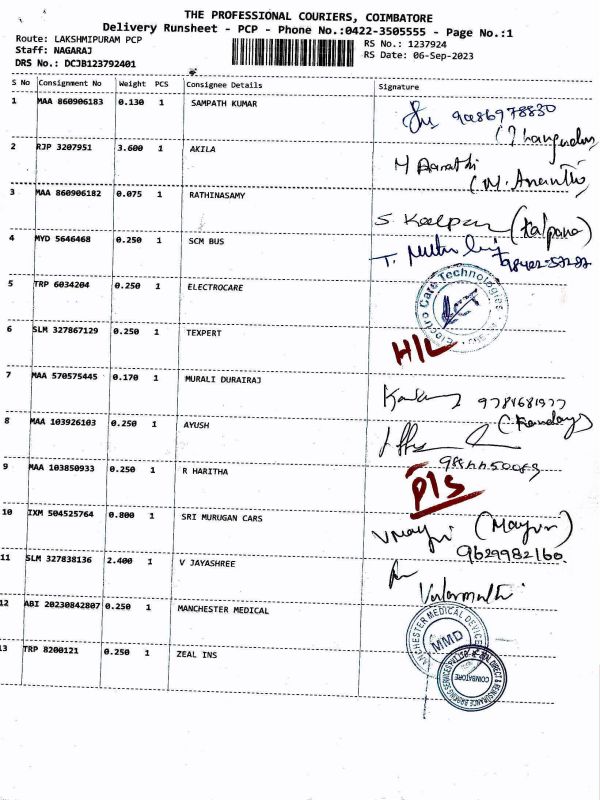 THE PROFESSIONAL COURIERS, COIMBATORE
Delivery Runsheet - PCP - Phone No.:0422-3505555 - Page No.:1
Route: LAKSHMIPURAM PCP
RS No.: 1237924
Staff: NAGARAJ
RS Date: 06-Sep-2023
DRS No.: DCJB123792401
S No Consignment No Weight PCS Consignee Details Signature
1 MAA 860906183 0.130 1 SAMPATH KUMAR
9086978830
2 RJP 3207951 3.600 1 AKILA
M Aarathi
3 MAA 860906182 0.075 1 RATHINASAMY
(Kalpana)
4 MYD 5646468 0.250 1 SCM BUS
5 TRP 6034204 0.250 1 ELECTROCARE
Electro Care Technologies
6 SLM 327867129 0.250 1 TEXPERT
H/L
7 MAA 570575445 0.170 1 MURALI DURAIRAJ
8 MAA 103926103 0.250 1 AYUSH
9 MAA 103850933 0.250 1 R HARITHA
P/S
10 IXM 504525764 0.800 1 SRI MURUGAN CARS
9629982160.
11 SLM 327838136 2.400 1 V JAYASHREE
12 ABI 20230842807 0.250 1 MANCHESTER MEDICAL
MANCHESTER MEDICAL DEVICES
MMD
13 TRP 8200121 0.250 1 ZEAL INS
COIMBATORE